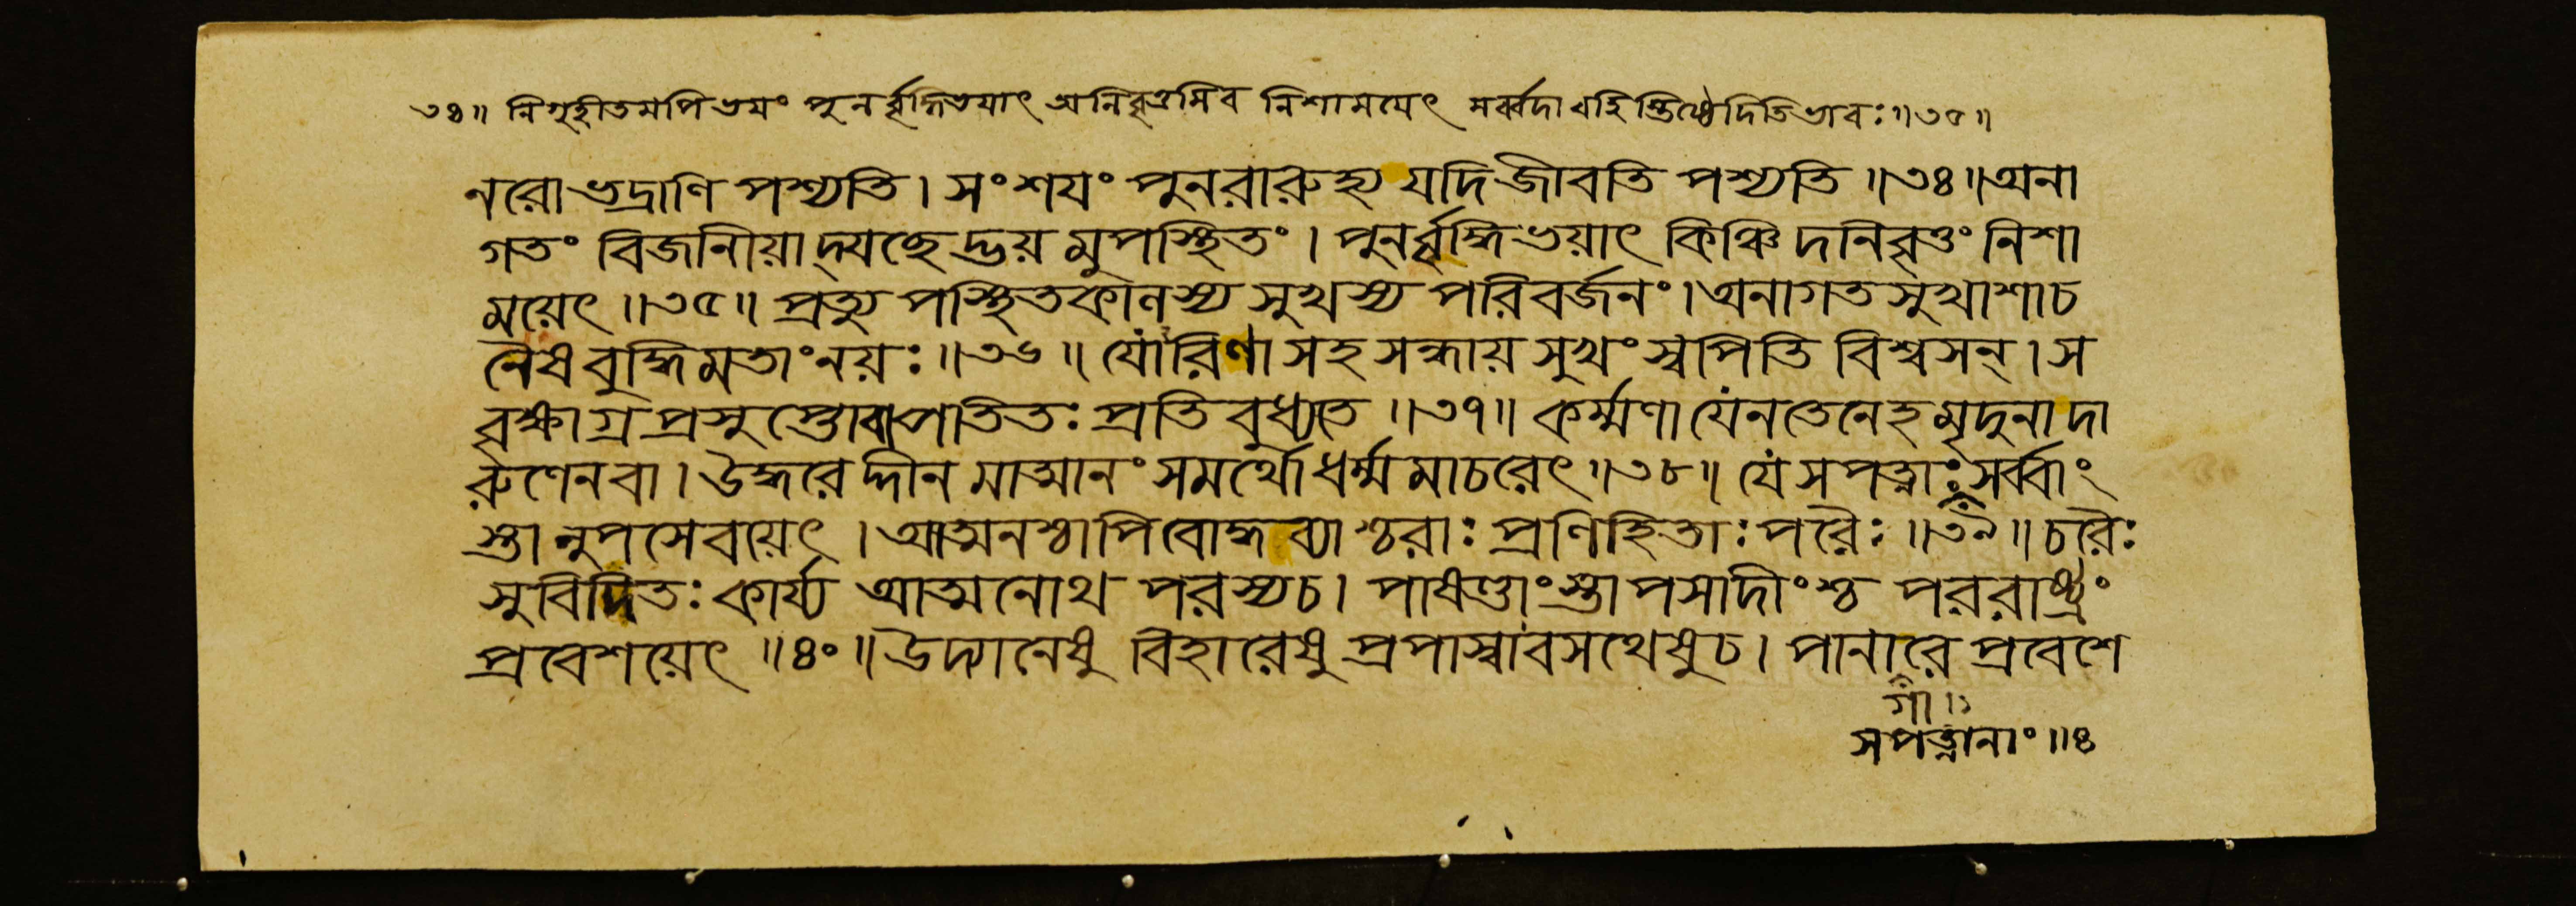 ৩৪॥ নিগৃহীতমপিভয়ং পুনর্ব্বৃদ্ধিভয়াৎ অনিবৃত্তমিব নিশাময়েৎ সর্ব্বদাবহিস্তিষ্ঠেদিতিভাবঃ॥৩৫॥
নরোভদ্রাণি পশ্যতি। সংশয়ং পুনরারুহ্য যদি জীবতি পশ্যতি॥৩৪॥অনা
গতং বিজানীয়াদ্যচ্ছেদ্ভয়মুপস্থিতং। পুনর্ব্বৃদ্ধিভয়াৎ কিঞ্চিদনিবৃত্তং নিশা
ময়েৎ॥৩৫॥ প্রত্যুপস্থিতকালস্য সুখস্য পরিবর্জনং।অনাগতসুখাশাচ
নৈষবুদ্ধিমতাংনয়ঃ॥৩৬॥ যোঽরিণাসহসন্ধায়সুখংস্বপিতি বিশ্বসন্। স
বৃক্ষাগ্রপ্রসুপ্তোবাপাতিতঃ প্রতিবুধ্যতে॥৩৭॥ কর্ম্মণাযেনতেনেহমৃদুনাদা
রুণেনবা। উদ্ধরেদ্দীনমাত্মানং সমর্থোধর্ম্মমাচরেৎ॥৩৮॥ যেসপত্নাঃসর্ব্বাং
স্তানুপসেবয়েৎ। আত্মনশ্চাপিবোদ্ধব্যাশ্চরাঃ প্রণিহিতাঃপরৈঃ॥৩৯॥চরৈঃ
সুবিদিতঃকার্য্য আত্মনোথ পরস্যচ। পাষণ্ডাংস্তাপসাদীংশ্চ পররাষ্ট্রং
প্রবেশয়েৎ॥৪০॥উদ্যানেষু বিহারেষু প্রপাস্বাবসথেষুচ। পানারে প্রবেশে
গা।ঃ
সপত্নানাং॥৪